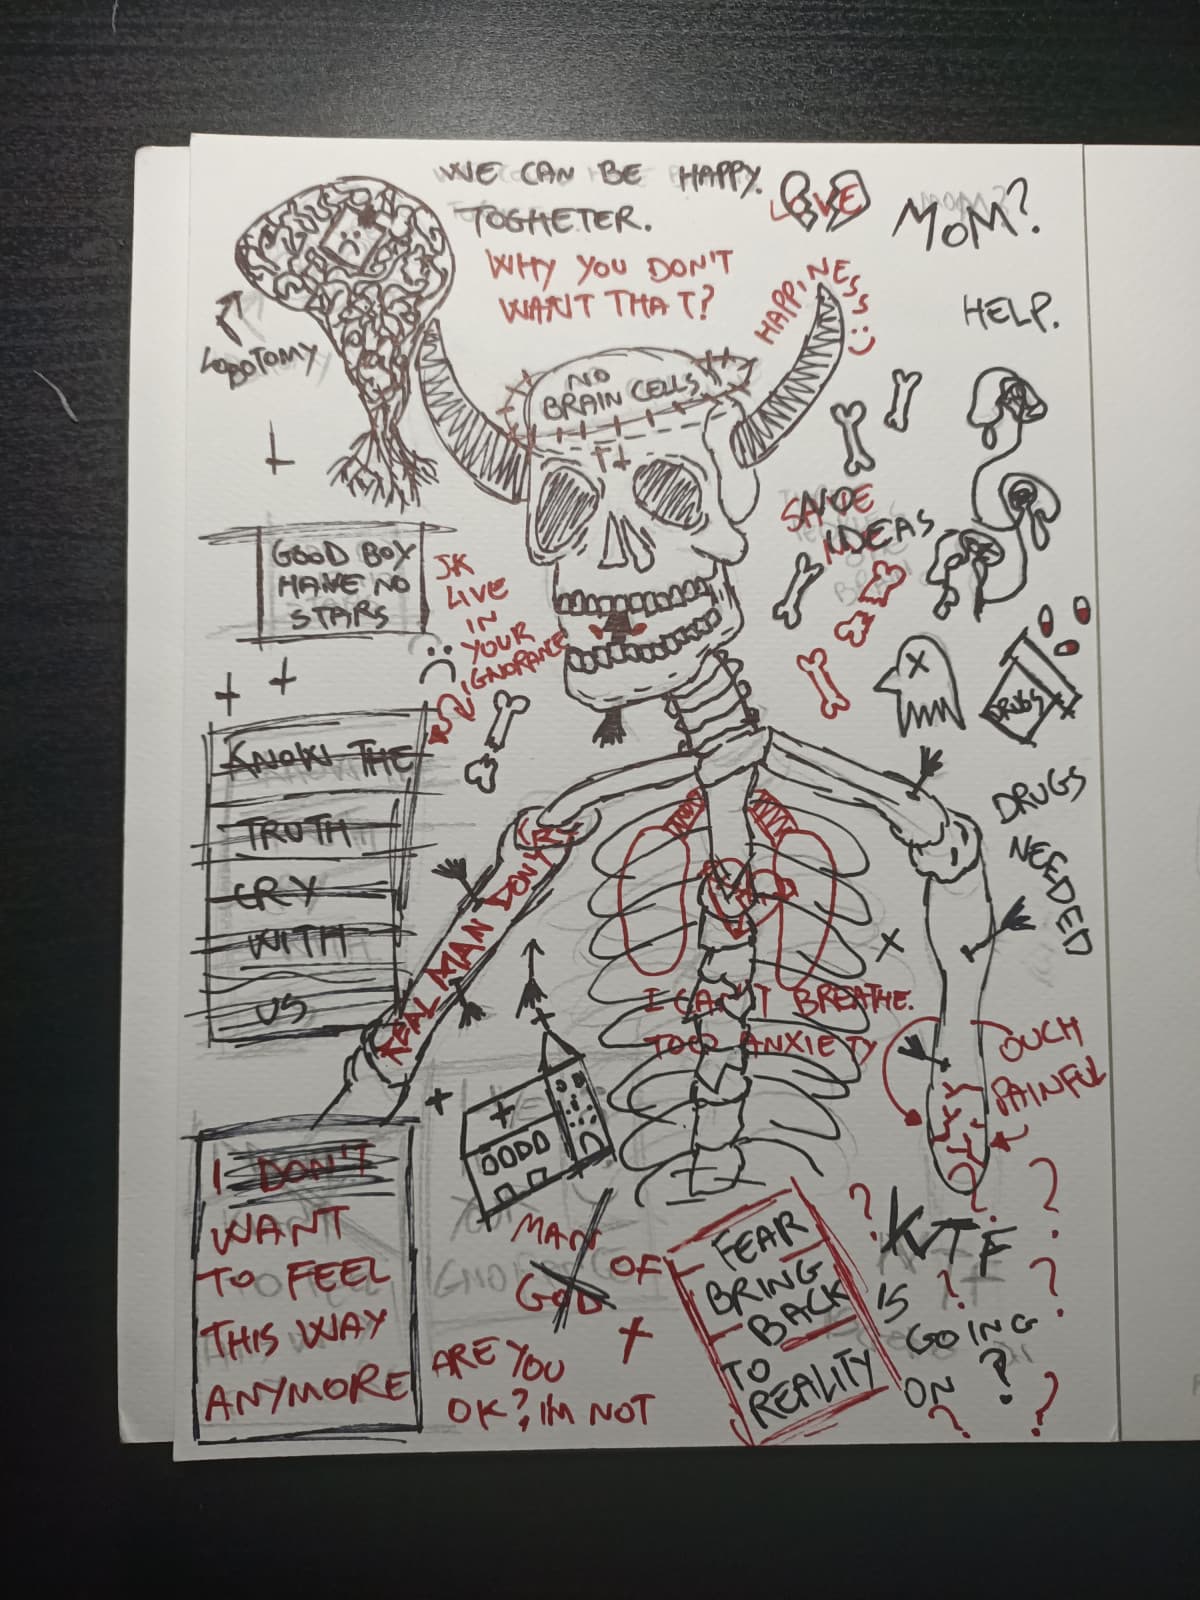 WE CAN BE HAPPY.
TOGHETER.
WHY YOU DON'T
WANT THAT?
LOVE
MOM?
HELP.
HAPPINESS :)
LOBOTOMY
NO
BRAIN CELLS
GOOD BOY
HAVE NO
STARS
JK
LIVE
IN
YOUR
IGNORANCE
IDEAS
DRUGS
DRUGS
NEEDED
KNOW THE
TRUTH
CRY
WITH
US
REAL MAN DON'T
CRY
I CAN'T BREATHE.
TOO ANXIETY
OUCH
PAINFUL
I DON'T
WANT
TO FEEL
THIS WAY
ANYMORE
MAN
OF
GOD
ARE YOU
OK? I'M NOT
FEAR
BRING
BACK
TO
REALITY
WTF
IS
GOING
ON ?